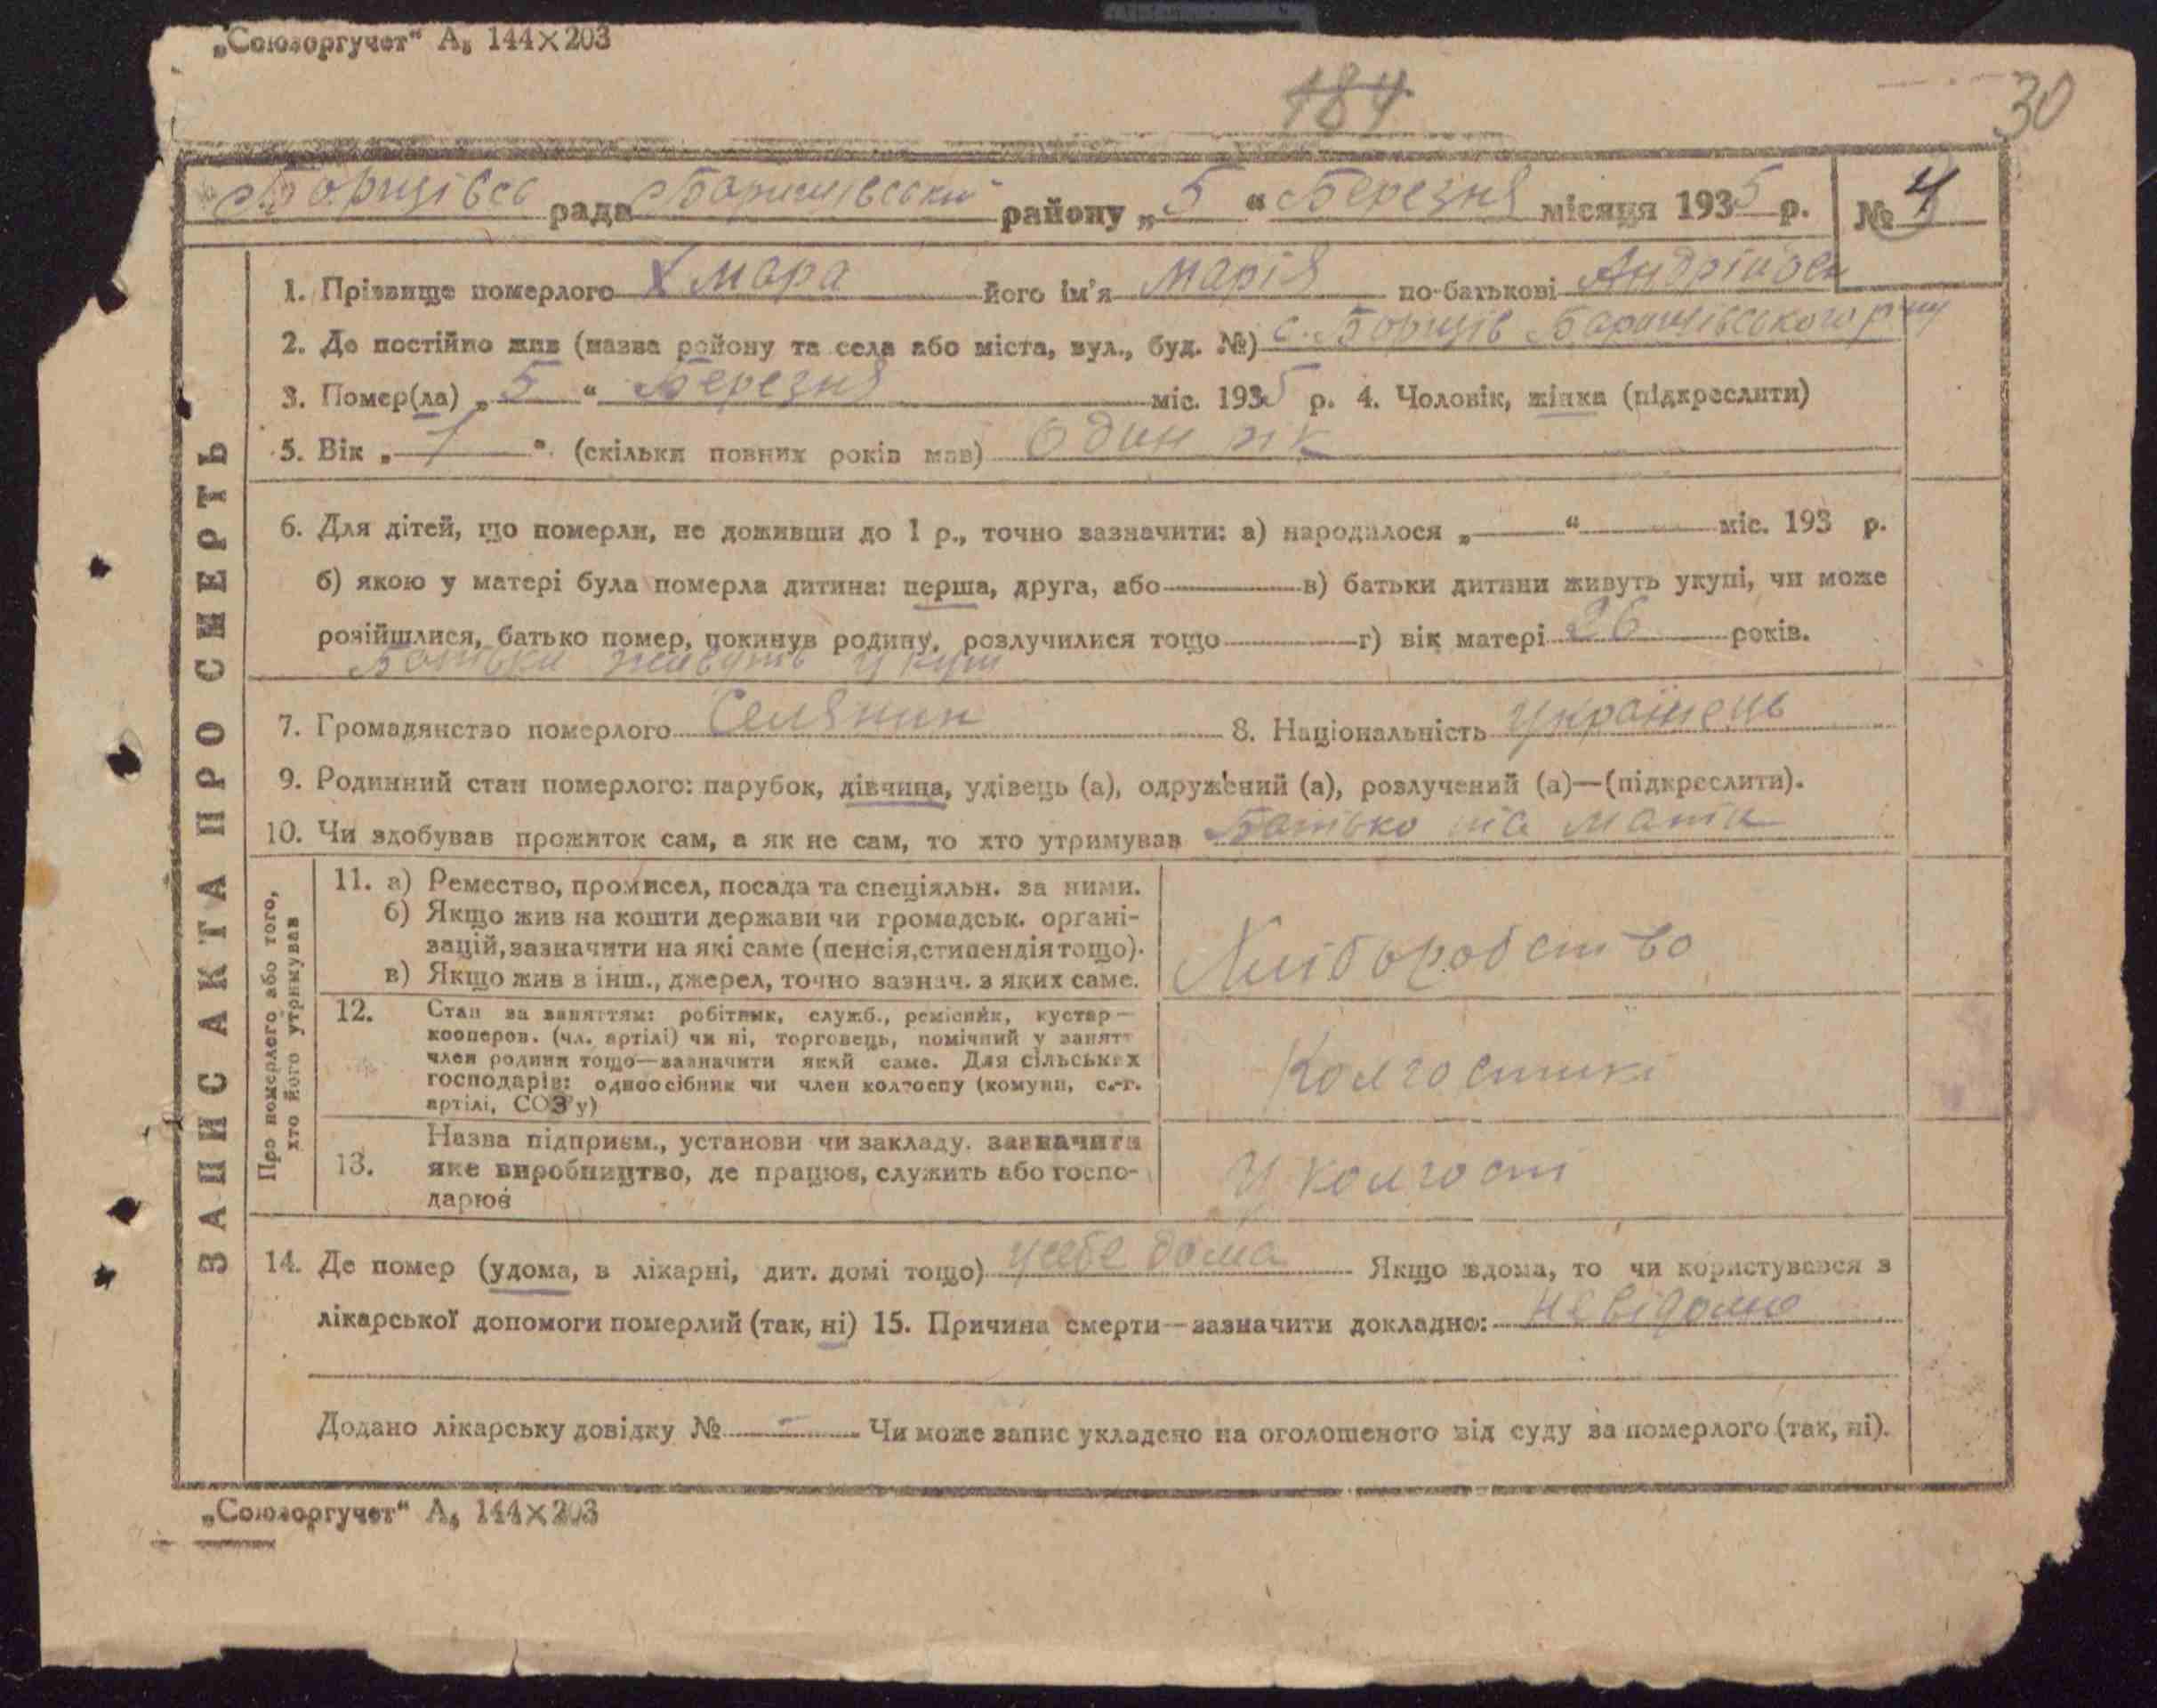 „Союзоргучет“ А₅ 144×203
184
30
Борщівсь рада Баришівський району „5“ Березня місяця 1935 р. № 4
1. Прізвище померлого Хмара його ім'я Марія по-батькові
2. Де постійно жив (назва району та села або міста, вул., буд. №) с. Борщів Баришівського р-ну
3. Помер(ла) „5“ Березня міс. 1935 р. 4. Чоловік, жінка (підкреслити)
5. Вік „1“ (скільки повних років мав) один рік
6. Для дітей, що померли, не доживши до 1 р., точно зазначити: а) народилося „—“ міс. 193 р.
б) якою у матері була померла дитина: перша, друга, або в) батьки дитини живуть укупі, чи може
розійшлися, батько помер, покинув родину, розлучилися тощо г) вік матері 26 років.
Батьки живуть укупі
7. Громадянство померлого Селянин 8. Національність Українець
9. Родинний стан померлого: парубок, дівчина, удівець (а), одружений (а), розлучений (а)—(підкреслити).
10. Чи здобував прожиток сам, а як не сам, то хто утримував Батько та мати
ЗАПИС АКТА ПРО СМЕРТЬ
Про померлого або того, хто його утримував
11. а) Ремество, промисел, посада та спеціяльн. за ними.
б) Якщо жив на кошти держави чи громадськ. органі-
зацій, зазначити на які саме (пенсія, стипендія тощо).
в) Якщо жив в інш., джерел, точно зазнач. з яких саме.
Хліборобство
12. Стан за заняттям: робітник, служб., ремісник, кустар—
кооперов. (чл. артілі) чи ні, торговець, помічний у занятт
член родини тощо—зазначити який саме. Для сільських
господарів: одноосібник чи член колгоспу (комуни, с.-г.
артілі, СОЗ'у)
Колгоспники
13. Назва підприєм., установи чи закладу. зазначити
яке виробництво, де працює, служить або госпо-
дарює
У колгоспі
14. Де помер (удома, в лікарні, дит. домі тощо) у себе дома Якщо вдома, то чи користувався з
лікарської допомоги померлий (так, ні) 15. Причина смерти—зазначити докладно: невідомо
Додано лікарську довідку № — Чи може запис укладено на оголошеного від суду за померлого (так, ні).
„Союзоргучет“ А₅ 144×203